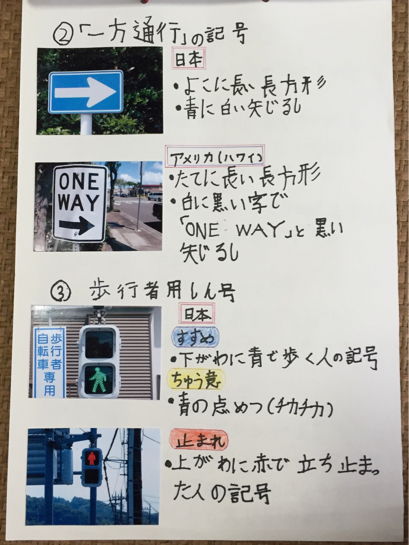 ②「一方通行」の記号
日本
・よこに長い長方形
・青に白い矢じるし
アメリカ(ハワイ)
ONE
WAY
・たてに長い長方形
・白に黒い字で
「ONE WAY」と黒い
矢じるし
③ 歩行者用しん号
日本
すすめ
歩行者
自転車専用
・下がわに青で歩く人の記号
ちゅう意
・青の点めつ(チカチカ)
止まれ
・上がわに赤で立ち止まっ
た人の記号